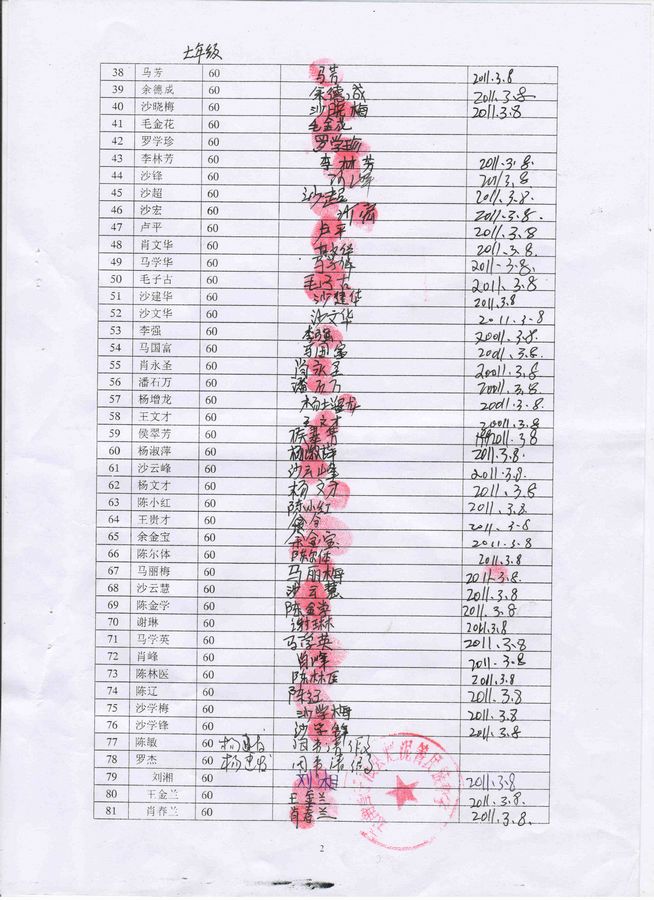 七年级
38 马芳 60 马芳 2011.3.8
39 余德成 60 余德成 2011.3.8
40 沙晓梅 60 沙晓梅 2011.3.8
41 毛金花 60 毛金花
42 罗学珍 60 罗学珍
43 李林芳 60 李林芳 2011.3.8.
44 沙锋 60 2011.3.8
45 沙超 60 沙超 2011.3.8.
46 沙宏 60 沙宏 2011.3.8.
47 卢平 60 卢平 2011.3.8
48 肖文华 60 肖文华 2011.3.8
49 马学华 60 马学华 2011.3.8.
50 毛子古 60 毛子古 2011.3.8
51 沙建华 60 沙建华 2011.3.8
52 沙文华 60 沙文华 2011.3.8
53 李强 60 李强 20011.3.8.
54 马国富 60 马国富 2001.3.8.
55 肖永圣 60 肖永圣 20011.3.8
56 潘石万 60 潘石万 20011.3.8
57 杨增龙 60 杨增龙 20011.3.8
58 王文才 60 王文才 20011.3.8
59 侯翠芳 60 侯翠芳 2011.3.8
60 杨淑萍 60 杨淑萍 2011.3.8.
61 沙云峰 60 沙云峰 2011.3.8.
62 杨文才 60 杨文才 2011.3.8
63 陈小红 60 陈小红 2011.3.8
64 王贵才 60 2011.3.8
65 余金宝 60 余金宝 2011.3.8
66 陈尔体 60 陈尔体 2011.3.8
67 马丽梅 60 马丽梅 2011.3.8
68 沙云慧 60 沙云慧 2011.3.8
69 陈金学 60 陈金学 2011.3.8.
70 谢琳 60 谢琳 2011.3.8
71 马学英 60 马学英 2011.3.8
72 肖峰 60 肖峰 2011.3.8
73 陈林医 60 陈林医 2011.3.8
74 陈辽 60 陈辽 2011.3.8
75 沙学梅 60 沙学梅 2011.3.8
76 沙学锋 60 沙学锋 2011.3.8
77 陈敏 60
78 罗杰 60
79 刘湘 60 刘湘 2011.3.8
80 王金兰 60 王金兰 2011.3.8.
81 肖春兰 60 肖春兰 2011.3.8.
2